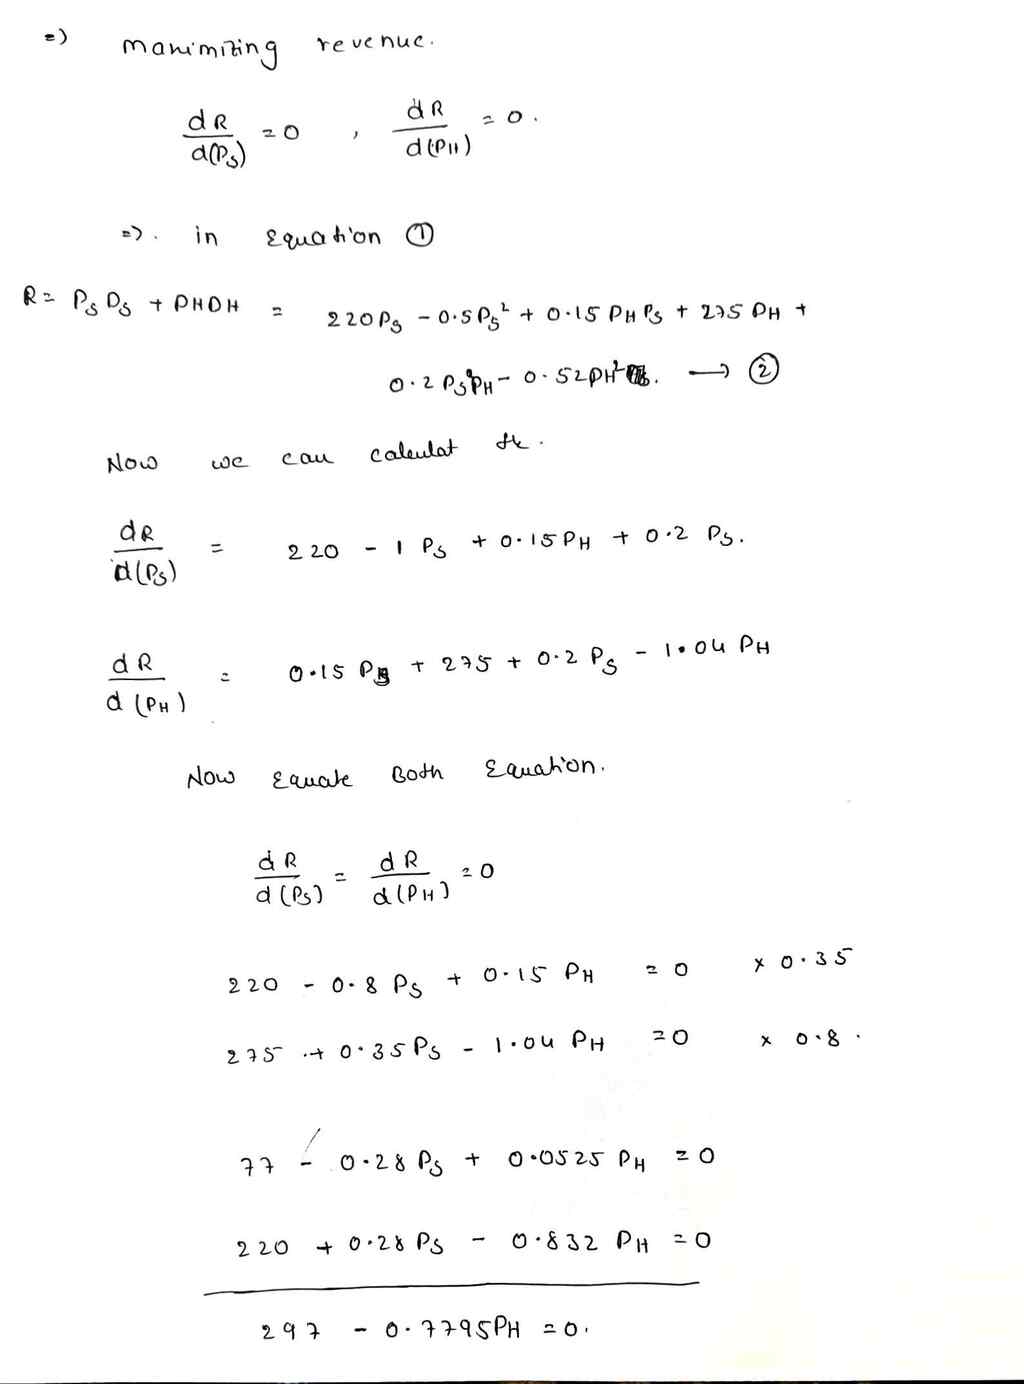 =) manimizing revenue.
dR/d(PS) = 0 , dR/d(PH) = 0.
=). in Equation ①
R = PS DS + PHDH = 220PS - 0.5PS² + 0.15 PH PS + 275 PH +
0.2 PS PH - 0.52PH² . → ②
Now we can calculat the.
dR/d(PS) = 220 - 1 PS + 0.15PH + 0.2 PS.
dR/d(PH) = 0.15 PS + 275 + 0.2 PS - 1.04 PH
Now Equate Both Equation.
dR/d(PS) = dR/d(PH) = 0
220 - 0.8 PS + 0.15 PH = 0 × 0.35
275 + 0.35PS - 1.04 PH = 0 × 0.8.
77 - 0.28 PS + 0.0525 PH = 0
220 + 0.28 PS - 0.832 PH = 0
297 - 0.7795PH = 0.